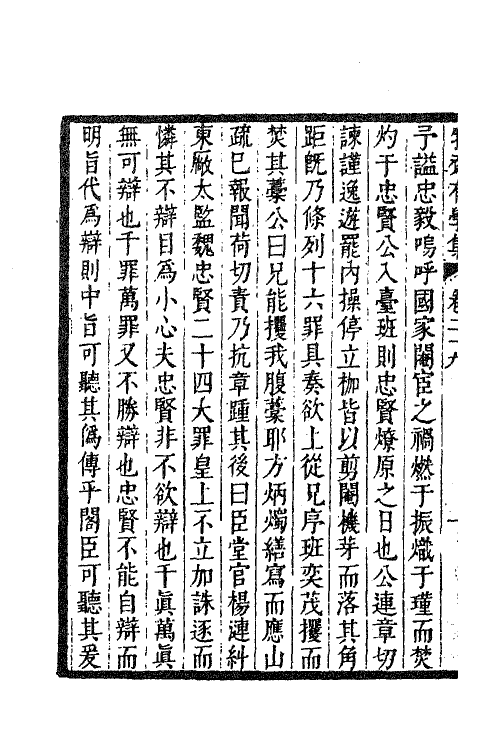 牧齋有學集 卷二十九
予諡忠毅嗚呼國家閹宦之禍燃于振熾于瑾而焚
灼于忠賢公入臺班則忠賢燎原之日也公連章切
諫謹逸遊罷內操停立枷皆以剪閹機芽而落其角
距旣乃條列十六罪具奏欲上從兄序班奕茂攫而
焚其藁公曰兄能攫我腹藁耶方炳燭繕寫而應山
疏巳報聞荷切責乃抗章踵其後曰臣堂官楊漣糾
東厰太監魏忠賢二十四大罪皇上不立加誅逐而
憐其不辯目爲小心夫忠賢非不欲辯也千眞萬眞
無可辯也千罪萬罪又不勝辯也忠賢不能自辯而
明旨代爲辯則中旨可聽其僞傳乎閣臣可聽其爰